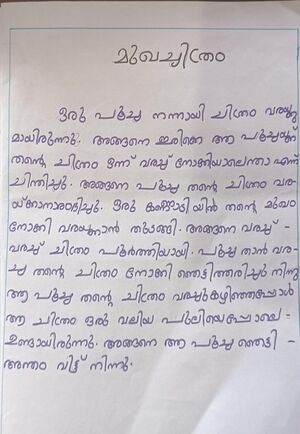 മുഖചിത്രം
ഒരു പൂച്ച നന്നായി ചിത്രം വരയ്ക്കു
മായിരുന്നു. അങ്ങനെ ഇരിക്കെ ആ പൂച്ചയ്ക്കു
തന്റെ ചിത്രം ഒന്ന് വരച്ച് നോക്കിയാലെന്താ എന്ന്
ചിന്തിച്ചു. അങ്ങനെ പൂച്ച തന്റെ ചിത്രം വര-
യ്ക്കാനാരംഭിച്ചു. ഒരു കണ്ണാടിയിൽ തന്റെ മുഖം
നോക്കി വരയ്ക്കാൻ തുടങ്ങി. അങ്ങനെ വരച്ച് -
വരച്ച് ചിത്രം പൂർത്തിയായി. പൂച്ച താൻ വര-
ച്ച തന്റെ ചിത്രം നോക്കി ഞെട്ടിത്തരിച്ചു നിന്നു
ആ പൂച്ച തന്റെ ചിത്രം വരച്ചുകഴിഞ്ഞപ്പോൾ
ആ ചിത്രം ഒരു വലിയ പുലിയെപ്പോലെ -
ഉണ്ടായിരുന്നു. അങ്ങനെ ആ പൂച്ച ഞെട്ടി -
അന്തം വിട്ട് നിന്നു.